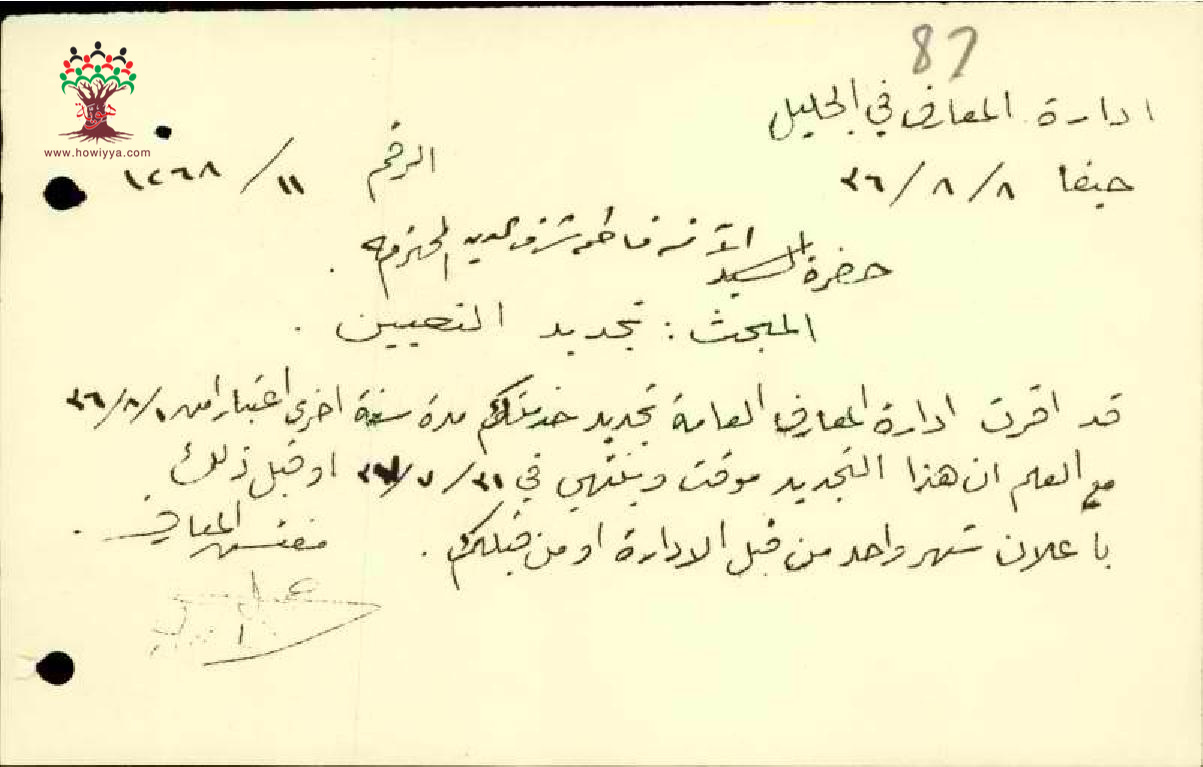 87
هوية
www.howiyya.com
ادارة المعارف في الجليل
حيفا ٨/٨/٣٦ الرقم ١١/١٢٦٨
حضرة السيد الآنسة فاطمة شرف الدين المحترمه .
المبحث : تجديد التعيين .
قد اقرت ادارة المعارف العامة تجديد خدمتك مدة سنة اخرى اعتبارا من ٣٦/٨/١
مع العلم ان هذا التجديد موقت وينتهي في ٣١/٧/٣٧ او قبل ذلك
باعلان شهر واحد من قبل الادارة او من قبلك .
مفتش المعارف .